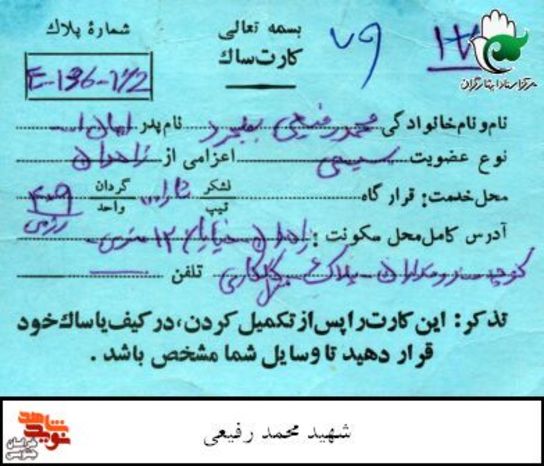 شمارهٔ پلاک
بسمه تعالی
کارت ساک
۷۹
۱۷
E-136-112
مرکز اسناد ایثارگران
نام و نام خانوادگی محمد رفیعی نام پدر
نوع عضویت بسیجی اعزامی از زاهدان
محل خدمت: قرارگاه لشکر تیپ ثارا... گردان واحد ۴۰۹ رزمی
آدرس کامل محل سکونت: زاهدان خیابان ۱۲ متری
کوچه پلاک تلفن
تذکر: این کارت را پس از تکمیل کردن، در کیف یا ساک خود
قرار دهید تا وسایل شما مشخص باشد.
شهید محمد رفیعی
نوید شاهد
خراسان جنوبی